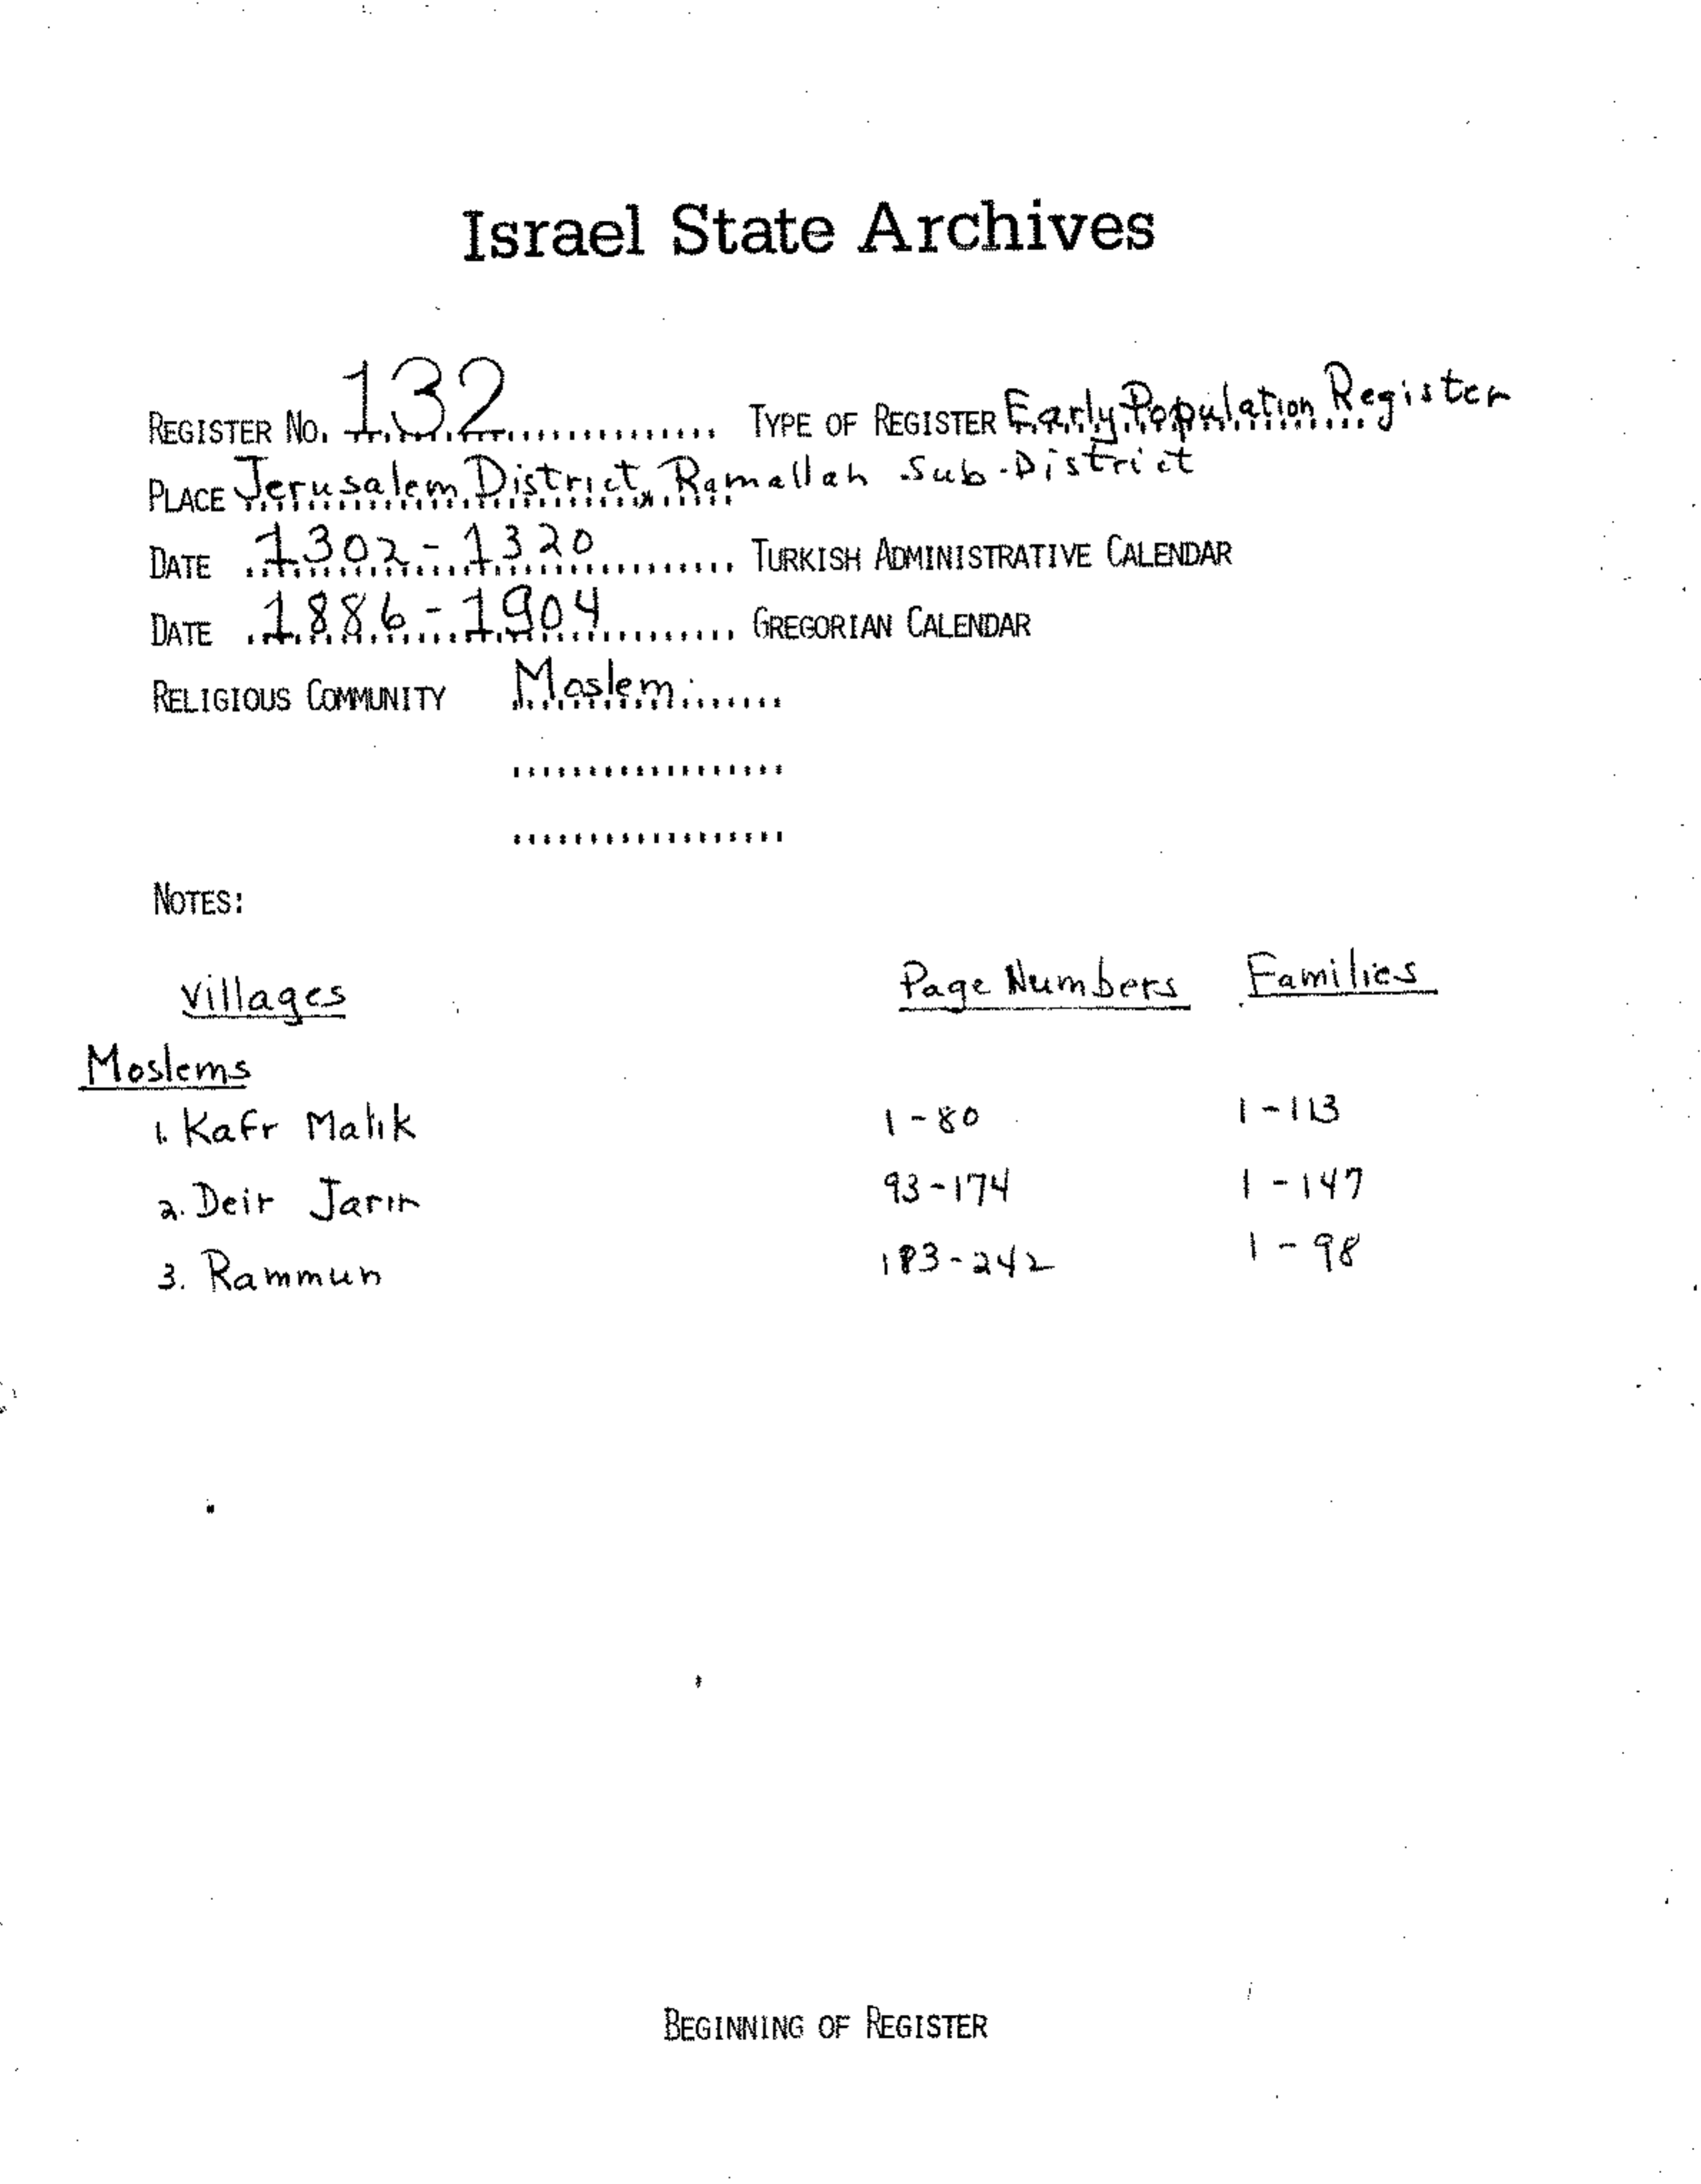 Israel State Archives
REGISTER NO. 132 TYPE OF REGISTER Early Population Register
PLACE Jerusalem District, Ramallah Sub-District
DATE 1302-1320 TURKISH ADMINISTRATIVE CALENDAR
DATE 1886-1904 GREGORIAN CALENDAR
RELIGIOUS COMMUNITY Moslem
NOTES:
Villages Page Numbers Families
Moslems
1. Kafr Malik 1-80 1-113
2. Deir Jarir 93-174 1-147
3. Rammun 183-242 1-98
BEGINNING OF REGISTER